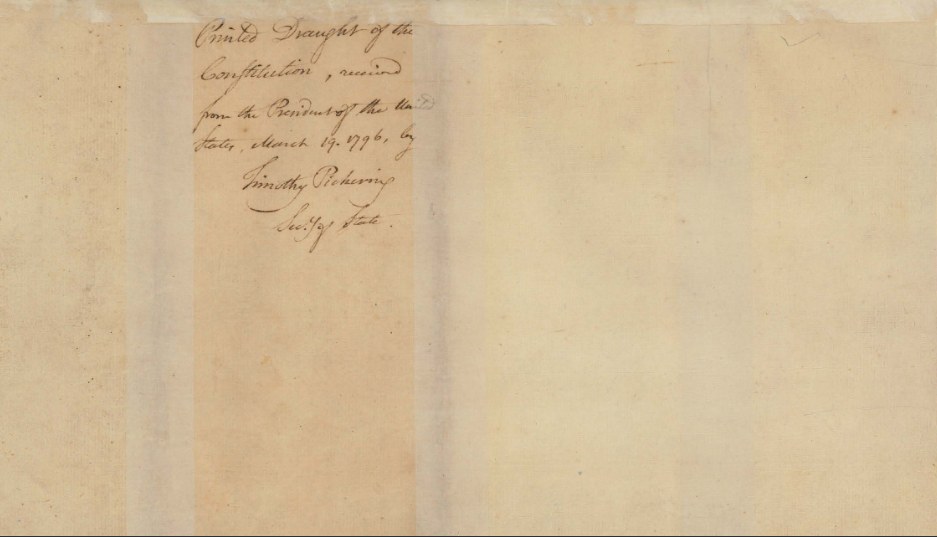 Printed Draught of the
Constitution, received
from the President of the United
States, March 19. 1796, by
Timothy Pickering
Secy. of State.